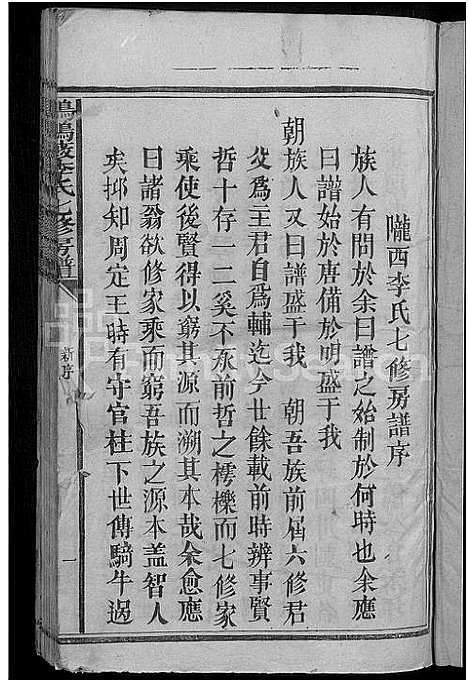 隴西李氏七修房譜序
族人有問於余曰譜之始制於何時也余應
曰譜始於唐備於明盛于我
朝族人又曰譜盛于我 朝吾族前屆六修君
父爲主君自爲輔迄今廿餘載前時辨事賢
哲十存一二奚不承前哲之樗櫟而七修家
乘使後賢得以窮其源而溯其本哉余愈應
曰諸翁欲修家乘而窮吾族之源本盖智人
矣抑知周定王時有守官柱下世傳騎牛過
李氏七修房譜
新序
一